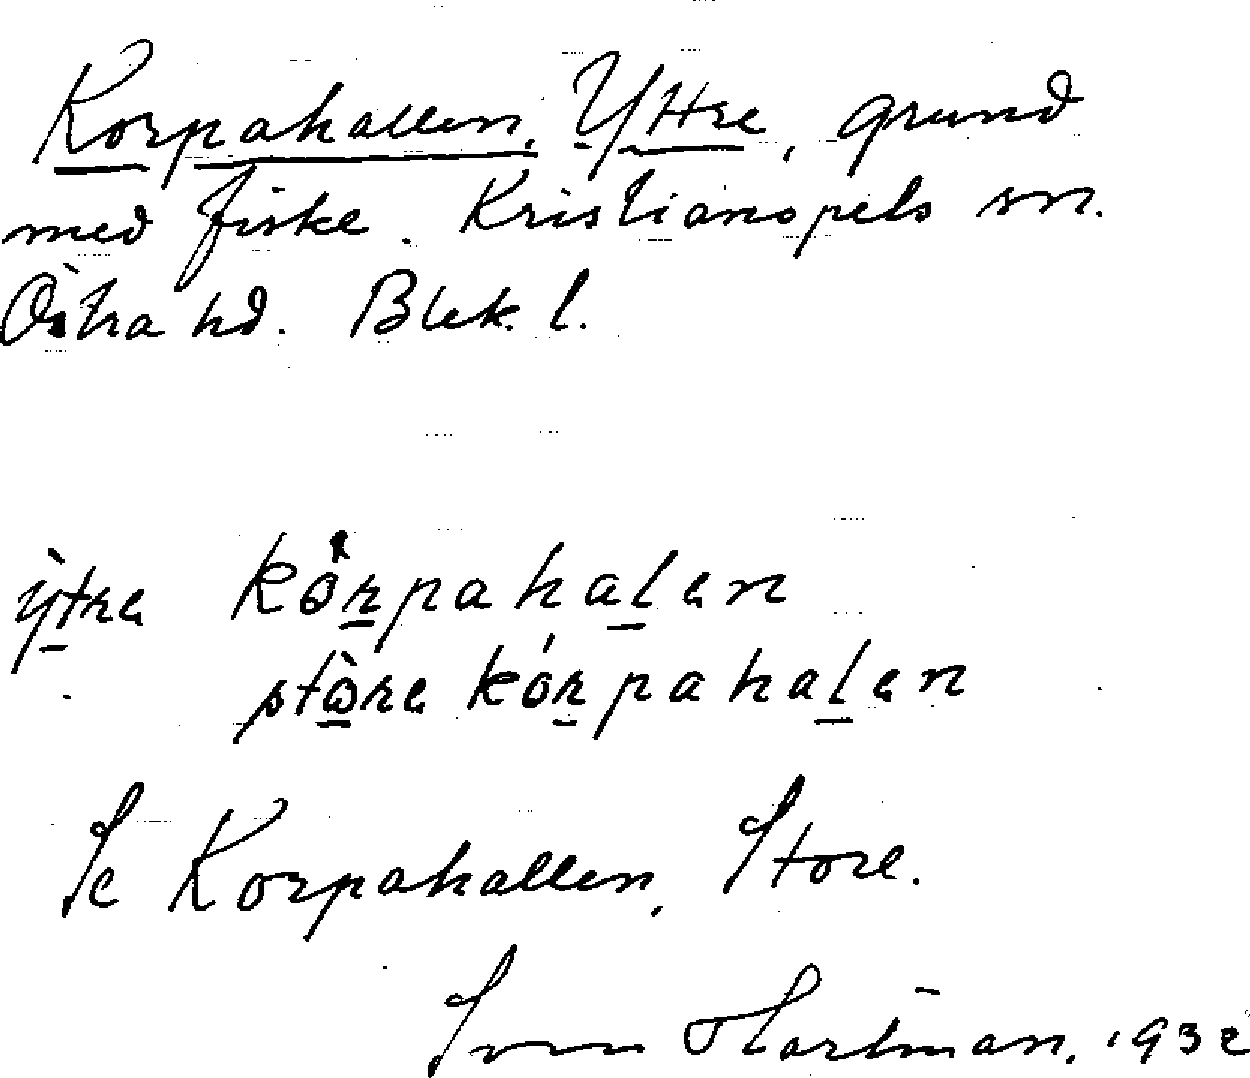 Korpahallen, Yttre, grund
med fiske. Kristianopels sn.
Östra hd. Blek. l.
ỳtre kórpahalen
stòre kórpahalen
Se Korpahallen, Store.
Sven Hartman, 1932